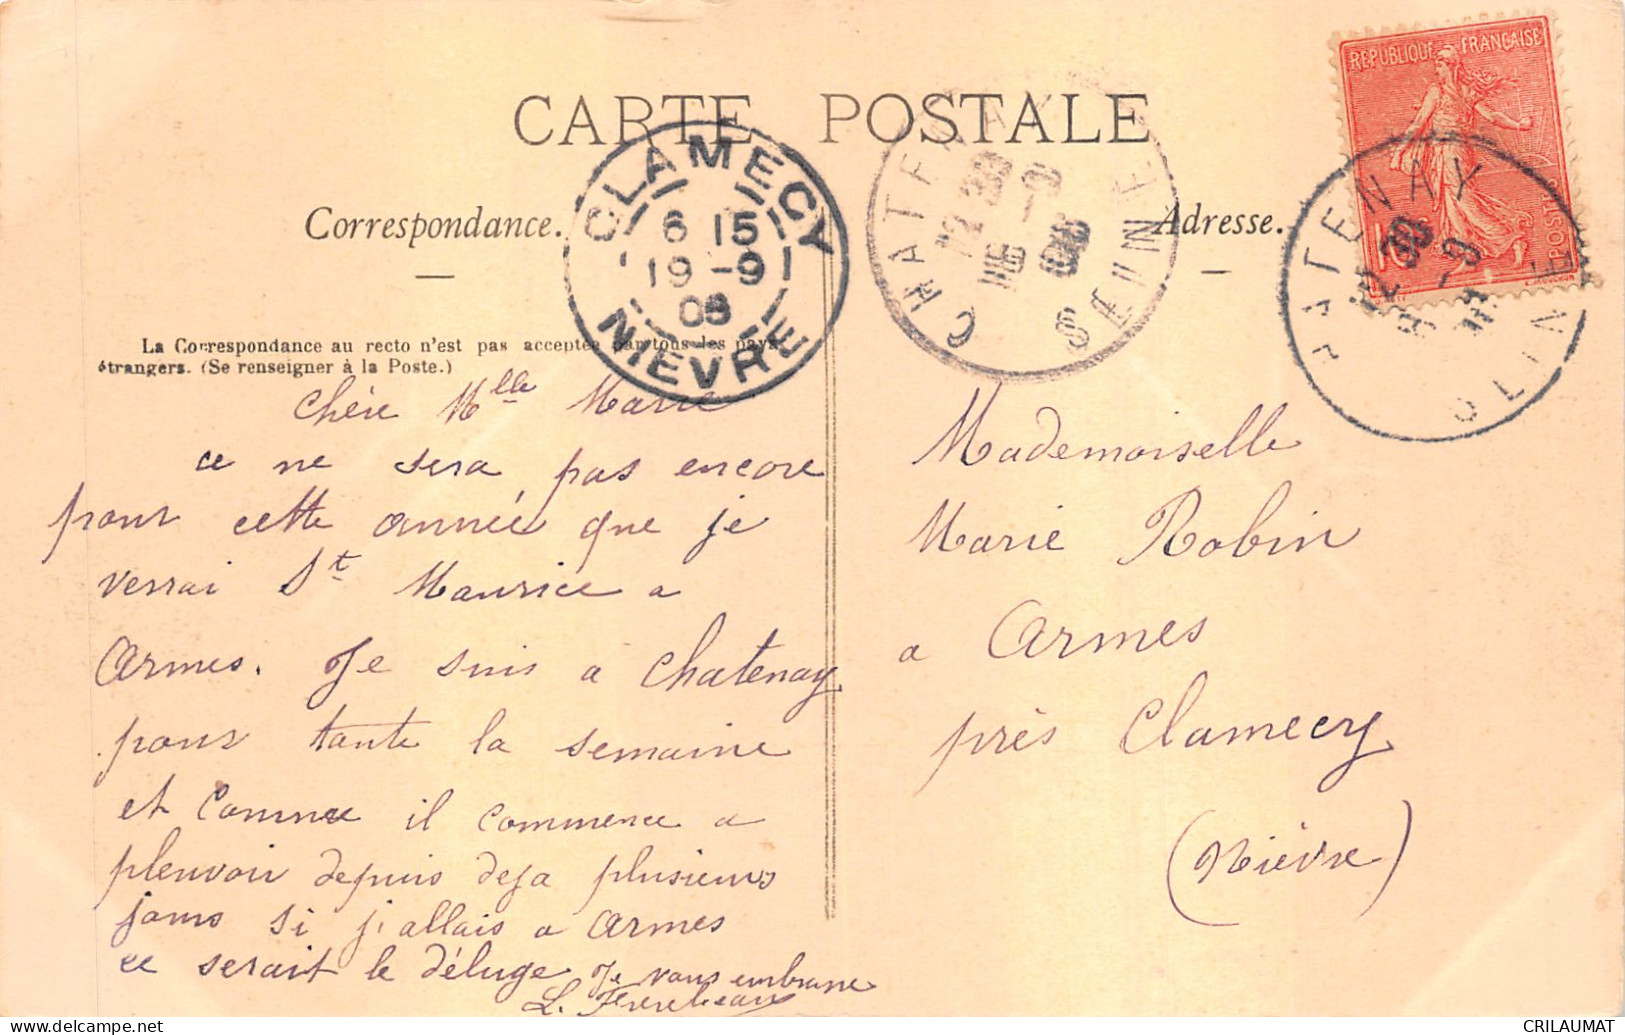 CARTE POSTALE
Correspondance.
Adresse.
La Correspondance au recto n'est pas acceptée par tous les pays
étrangers. (Se renseigner à la Poste.)
CLAMECY
6 15
19 -9
08
NIEVRE
CHATENAY
SEINE
REPUBLIQUE FRANÇAISE
POSTES
10
CHATENAY
SEINE
Chère Mlle Marie
ce ne sera pas encore
pour cette année que je
verrai St Maurice a
Armes. Je suis a Chatenay
pour toute la semaine
et comme il commence a
pleuvoir depuis deja plusieurs
jours si j'allais a Armes
ce serait le déluge Je vous embrasse
L.
Mademoiselle
Marie Robin
a Armes
près Clamecy
(Nièvre)
CRILAUMAT